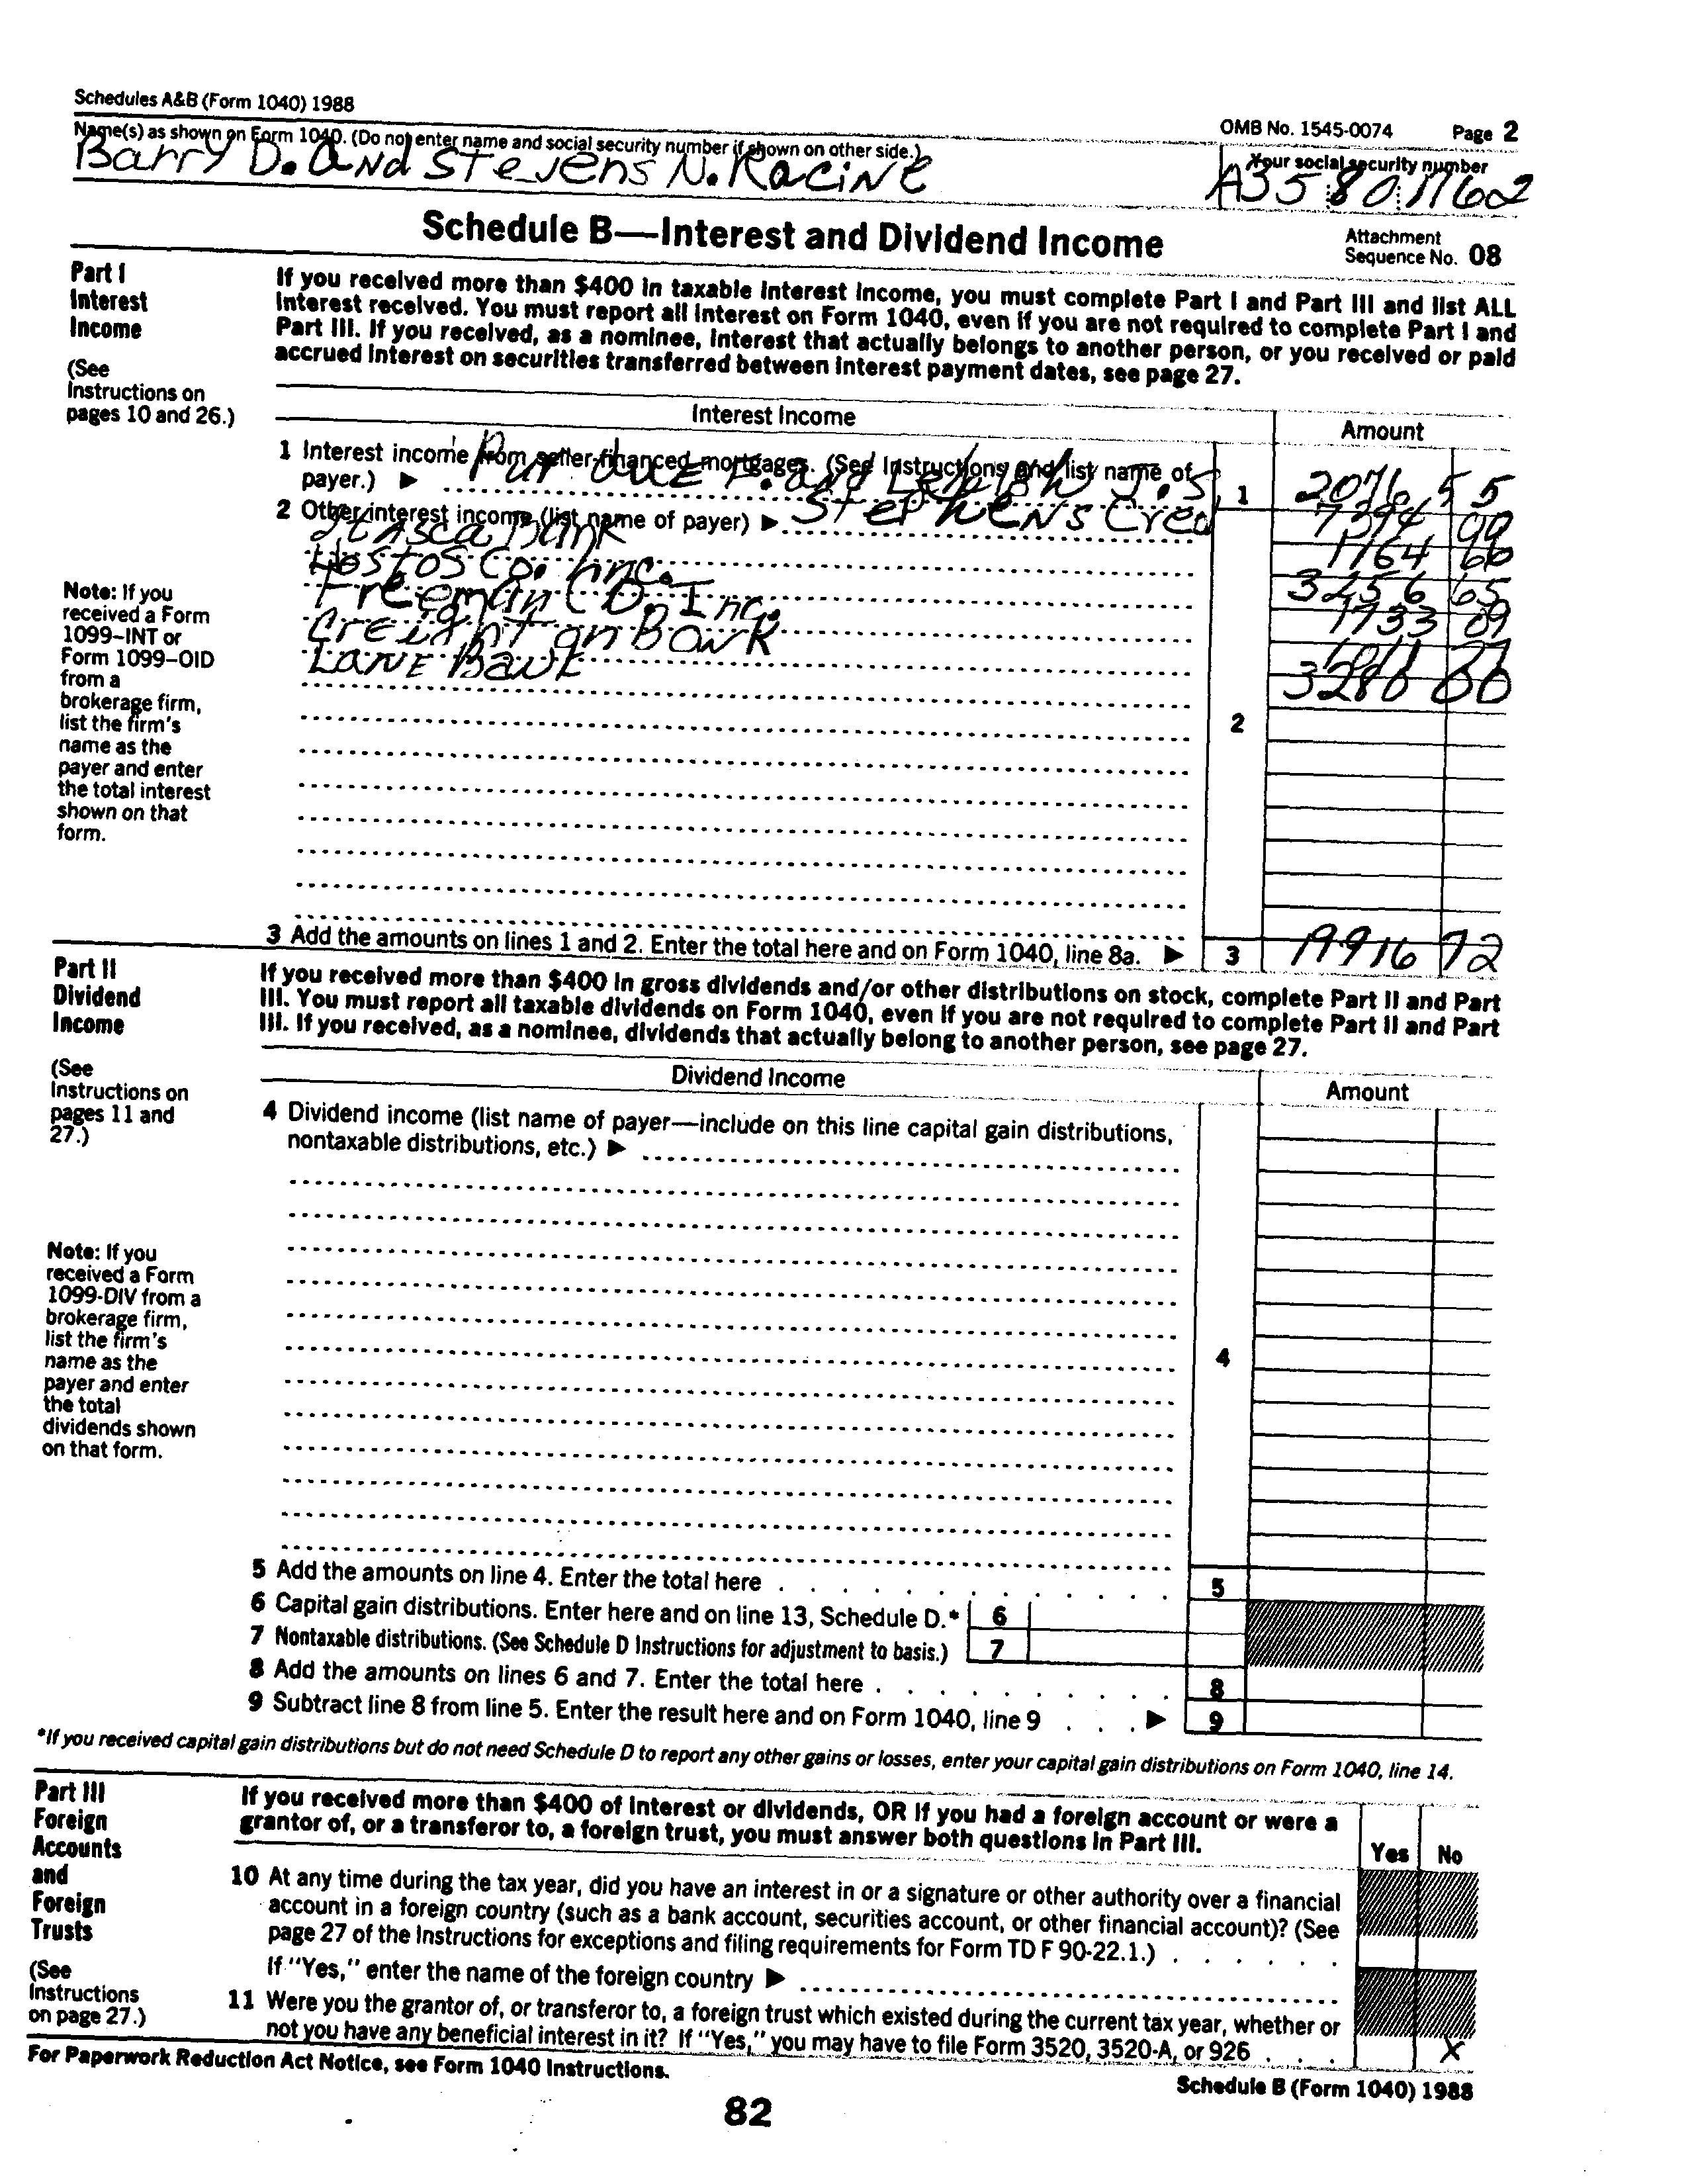 Schedules A&B (Form 1040) 1988
OMB No. 1545-0074 Page 2
Name(s) as shown on Form 1040. (Do not enter name and social security number if shown on other side.)
Your social security number
Barry D. and Stevens N. Racine
A35 80 1762
Schedule B—Interest and Dividend Income
Attachment
Sequence No. 08
Part I
Interest
Income
(See
Instructions on
pages 10 and 26.)
If you received more than $400 in taxable interest income, you must complete Part I and Part III and list ALL
interest received. You must report all interest on Form 1040, even if you are not required to complete Part I and
Part III. If you received, as a nominee, interest that actually belongs to another person, or you received or paid
accrued interest on securities transferred between interest payment dates, see page 27.
Interest Income
Amount
1 Interest income from seller-financed mortgages. (See Instructions and list name of
payer.) ▶
Purdue F. and J.S.
1
2076 55
2 Other interest income (list name of payer) ▶
Stephens Cred
7394
Itasca Bank
1164
Hostos Co. Inc.
3256 65
Freeman CD. Inc.
1733 09
Creighton Bank
Lane Bank
3280 00
Note: If you
received a Form
1099–INT or
Form 1099–OID
from a
brokerage firm,
list the firm's
name as the
payer and enter
the total interest
shown on that
form.
2
3 Add the amounts on lines 1 and 2. Enter the total here and on Form 1040, line 8a. ▶
3
19916 72
Part II
Dividend
Income
(See
Instructions on
pages 11 and
27.)
If you received more than $400 in gross dividends and/or other distributions on stock, complete Part II and Part
III. You must report all taxable dividends on Form 1040, even if you are not required to complete Part II and Part
III. If you received, as a nominee, dividends that actually belong to another person, see page 27.
Dividend Income
Amount
4 Dividend income (list name of payer—include on this line capital gain distributions,
nontaxable distributions, etc.) ▶
Note: If you
received a Form
1099-DIV from a
brokerage firm,
list the firm's
name as the
payer and enter
the total
dividends shown
on that form.
4
5 Add the amounts on line 4. Enter the total here
5
6 Capital gain distributions. Enter here and on line 13, Schedule D.* 6
7 Nontaxable distributions. (See Schedule D Instructions for adjustment to basis.) 7
8 Add the amounts on lines 6 and 7. Enter the total here
8
9 Subtract line 8 from line 5. Enter the result here and on Form 1040, line 9 ▶
9
*If you received capital gain distributions but do not need Schedule D to report any other gains or losses, enter your capital gain distributions on Form 1040, line 14.
Part III
Foreign
Accounts
and
Foreign
Trusts
(See
Instructions
on page 27.)
If you received more than $400 of interest or dividends, OR if you had a foreign account or were a
grantor of, or a transferor to, a foreign trust, you must answer both questions in Part III.
Yes No
10 At any time during the tax year, did you have an interest in or a signature or other authority over a financial
account in a foreign country (such as a bank account, securities account, or other financial account)? (See
page 27 of the Instructions for exceptions and filing requirements for Form TD F 90-22.1.)
If "Yes," enter the name of the foreign country ▶
11 Were you the grantor of, or transferor to, a foreign trust which existed during the current tax year, whether or
not you have any beneficial interest in it? If "Yes," you may have to file Form 3520, 3520-A, or 926
X
For Paperwork Reduction Act Notice, see Form 1040 Instructions.
Schedule B (Form 1040) 1988
82